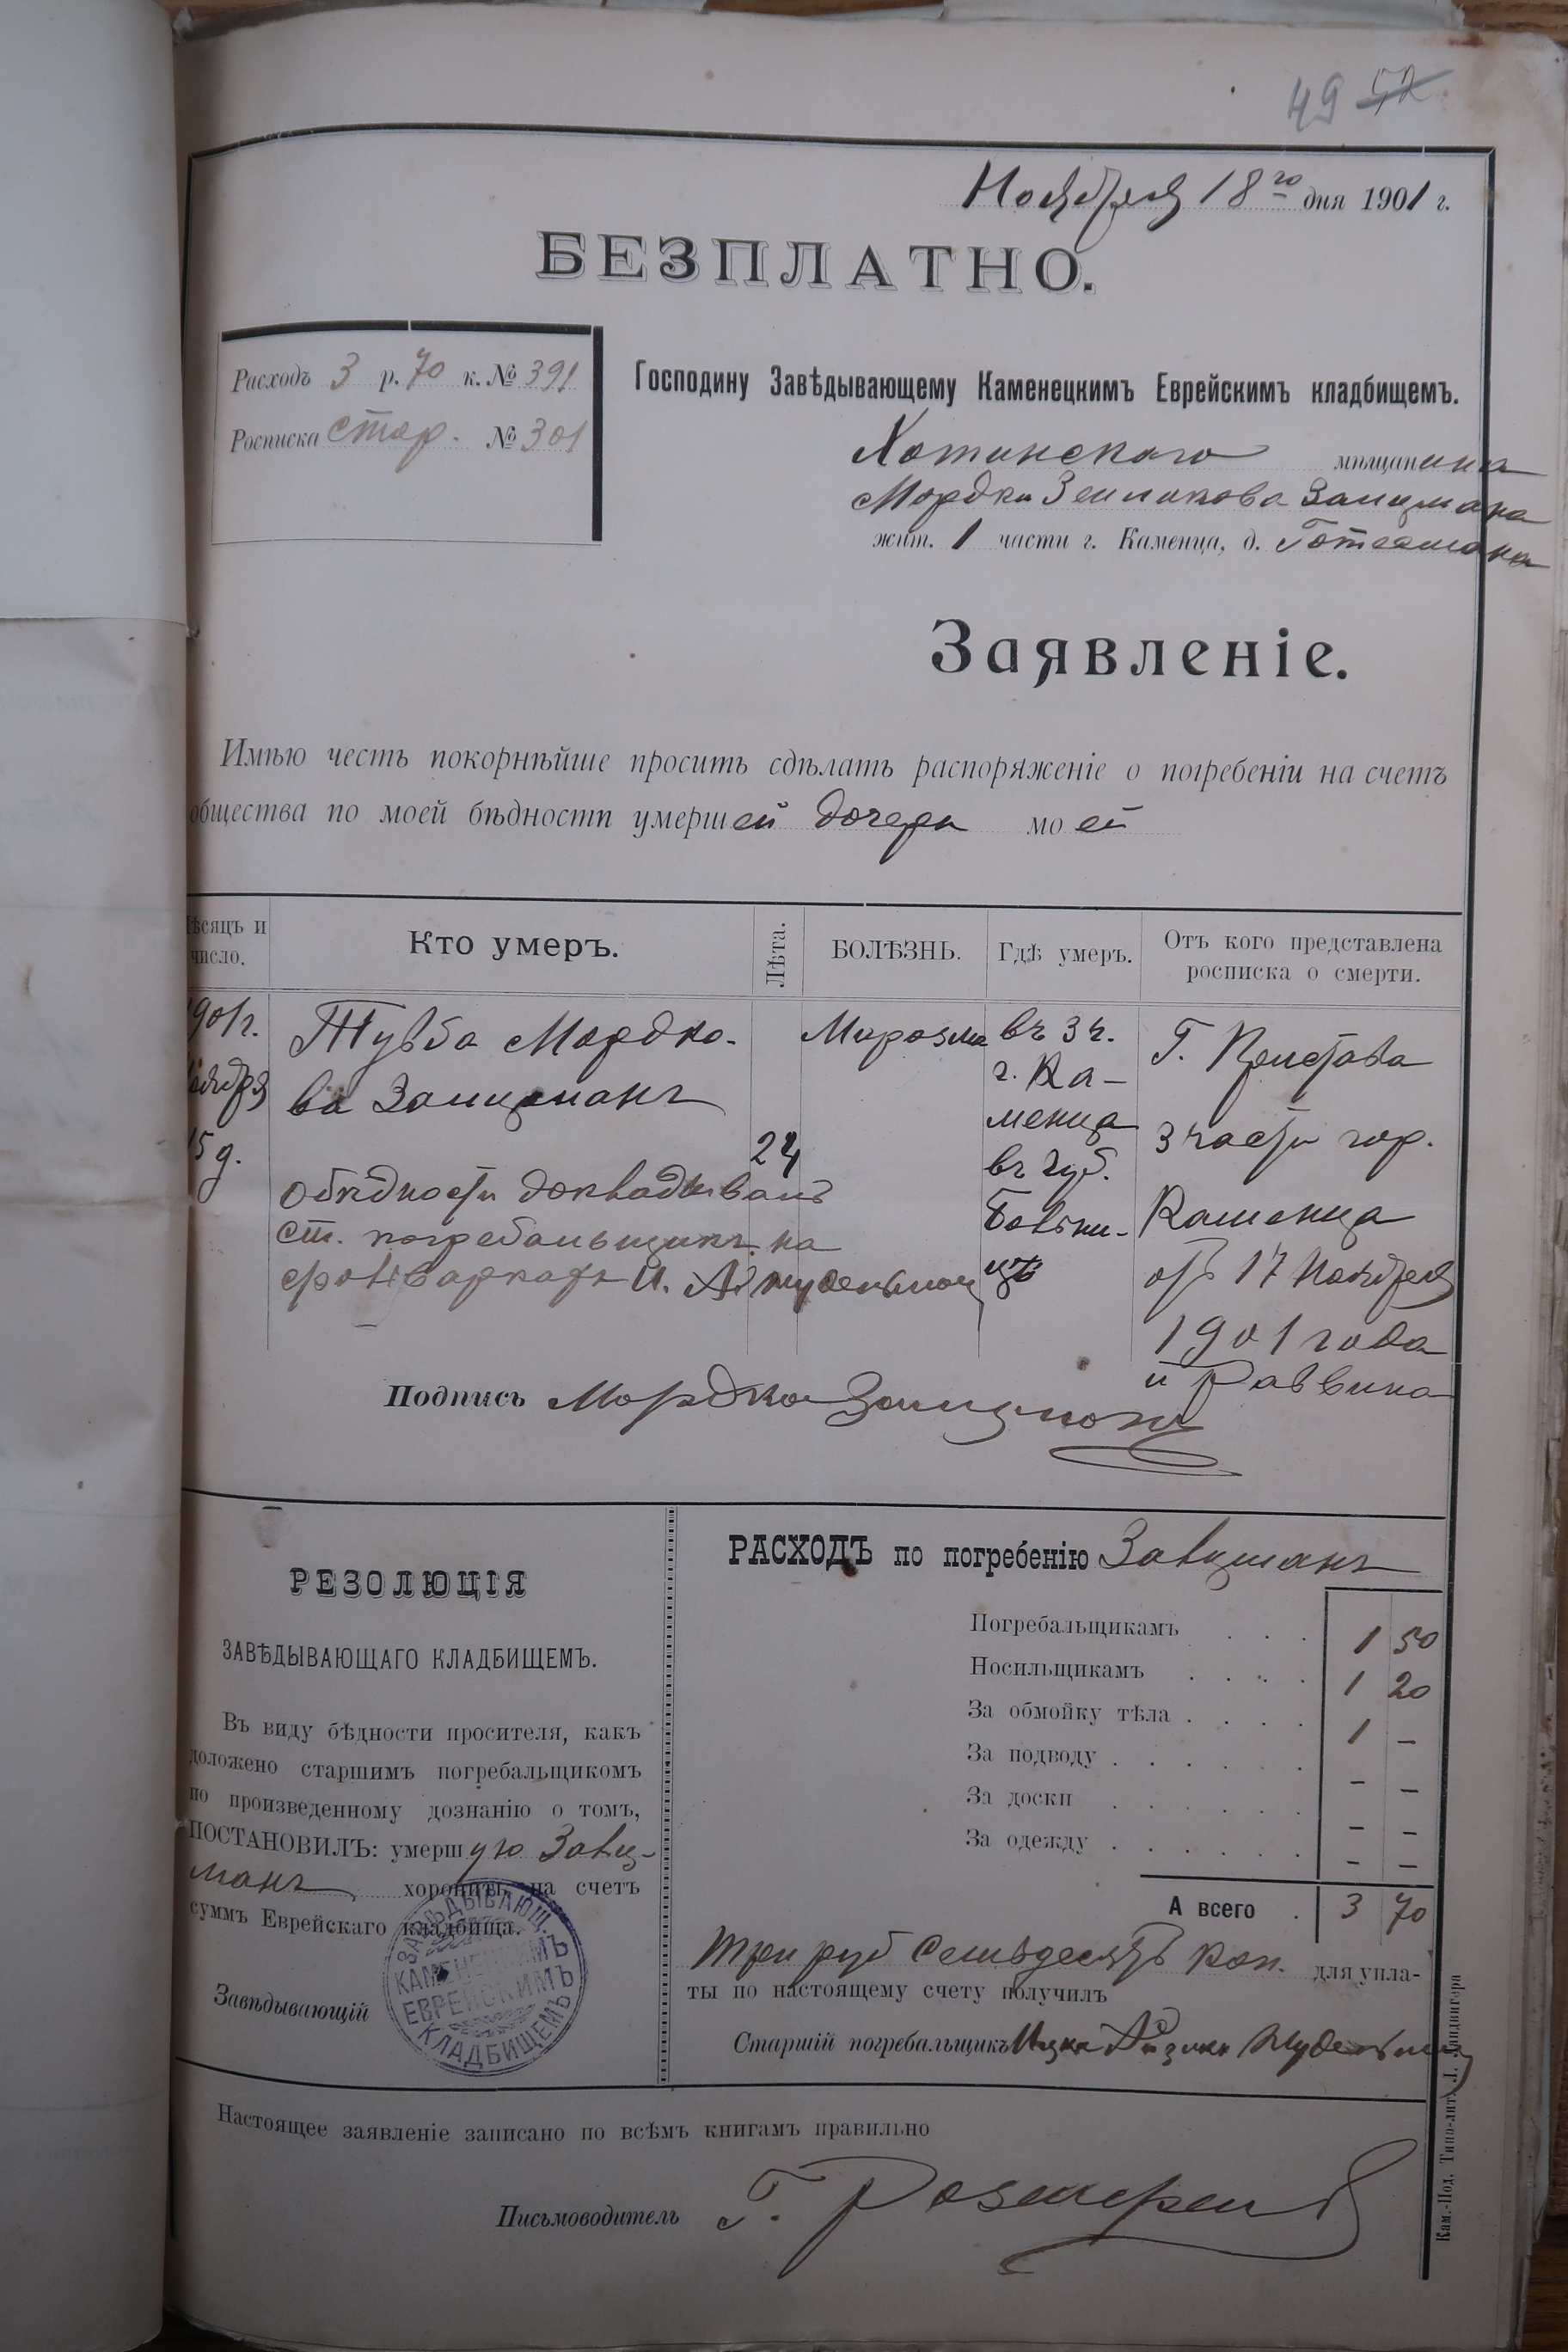 49 52
Ноября 18го дня 1901 г.
БЕЗПЛАТНО.
Расходъ 3 р. 70 к. № 391
Росписка стар. № 301
Господину Завѣдывающему Каменецкимъ Еврейскимъ кладбищемъ.
Хотинскаго мѣщанина
Мордка Зейликова Залцмана
жит. 1 части г. Каменца, д. Готесмана
Заявленіе.
Имѣю честь покорнѣйше просить сдѣлать распоряженіе о погребеніи на счетъ
общества по моей бѣдности умершей дочери моей
ѣсяцъ и число.
Кто умеръ.
Лѣта.
БОЛѢЗНЬ.
Гдѣ умеръ.
Отъ кого представлена росписка о смерти.
901г.
оября
15 д.
Мордко-
ва Залцманъ
24
въ 3 ч.
г. Ка-
менца
въ губ.
Больни-
цѣ
Г. Пристава
3 части гор.
Каменца
отъ 17 Ноября
1901 года
и Раввина
о бѣдности докладывалъ
ст. погребальщикъ
Подпись Мордко Залцманъ
РЕЗОЛЮЦІЯ
ЗАВѢДЫВАЮЩАГО КЛАДБИЩЕМЪ.
Въ виду бѣдности просителя, какъ
доложено старшимъ погребальщикомъ
по произведенному дознанію о томъ,
ПОСТАНОВИЛЪ: умершую Залц-
манъ хоронить на счетъ
суммъ Еврейскаго кладбища.
Завѣдывающій
ЗАВѢДЫВАЮЩ.
КАМЕНЕЦКИМЪ
ЕВРЕЙСКИМЪ
КЛАДБИЩЕМЪ
РАСХОДЪ по погребенію Залцманъ
Погребальщикамъ . . . 1 50
Носильщикамъ . . . . 1 20
За обмойку тѣла . . . . 1 –
За подводу . . . . . . – –
За доски . . . . . . – –
За одежду . . . . . . – –
А всего . 3 70
Три руб семьдесятъ коп. для упла-
ты по настоящему счету получилъ
Старшій погребальщикъ Ицко
Настоящее заявленіе записано по всѣмъ книгамъ правильно
Письмоводитель Г.
Кам.-Под. Типо-лит. Л. Ландвигера